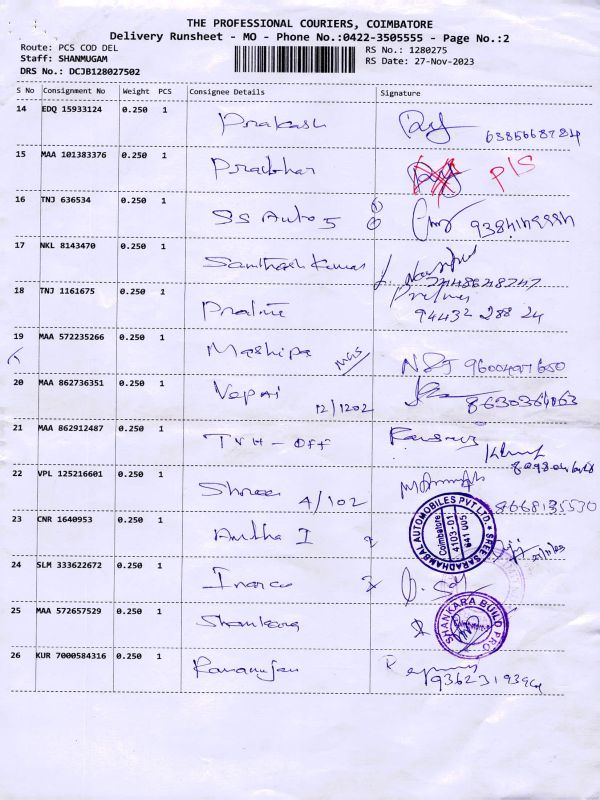 THE PROFESSIONAL COURIERS, COIMBATORE
Delivery Runsheet - MO - Phone No.:0422-3505555 - Page No.:2
Route: PCS COD DEL
RS No.: 1280275
Staff: SHANMUGAM
RS Date: 27-Nov-2023
DRS No.: DCJB128027502
S No Consignment No Weight PCS Consignee Details Signature
14 EDQ 15933124 0.250 1 Prakash
15 MAA 101383376 0.250 1 Prabhar P/S
16 TNJ 636534 0.250 1 SS Auto 5
17 NKL 8143470 0.250 1 Santhosh Kumar
18 TNJ 1161675 0.250 1 94432 288 24
19 MAA 572235266 0.250 1
20 MAA 862736351 0.250 1 12/1202
21 MAA 862912487 0.250 1 TVH - OFF
22 VPL 125216601 0.250 1 Shree 4/102 8668135530
23 CNR 1640953 0.250 1 Antha I
SREE SARADHAMBAL AUTOMOBILES PVT LTD.
Coimbatore
4103-01
641 005
24 SLM 333622672 0.250 1
25 MAA 572657529 0.250 1 Shankara
SHANKARA BUILD PRO
26 KUR 7000584316 0.250 1 Ramanujan